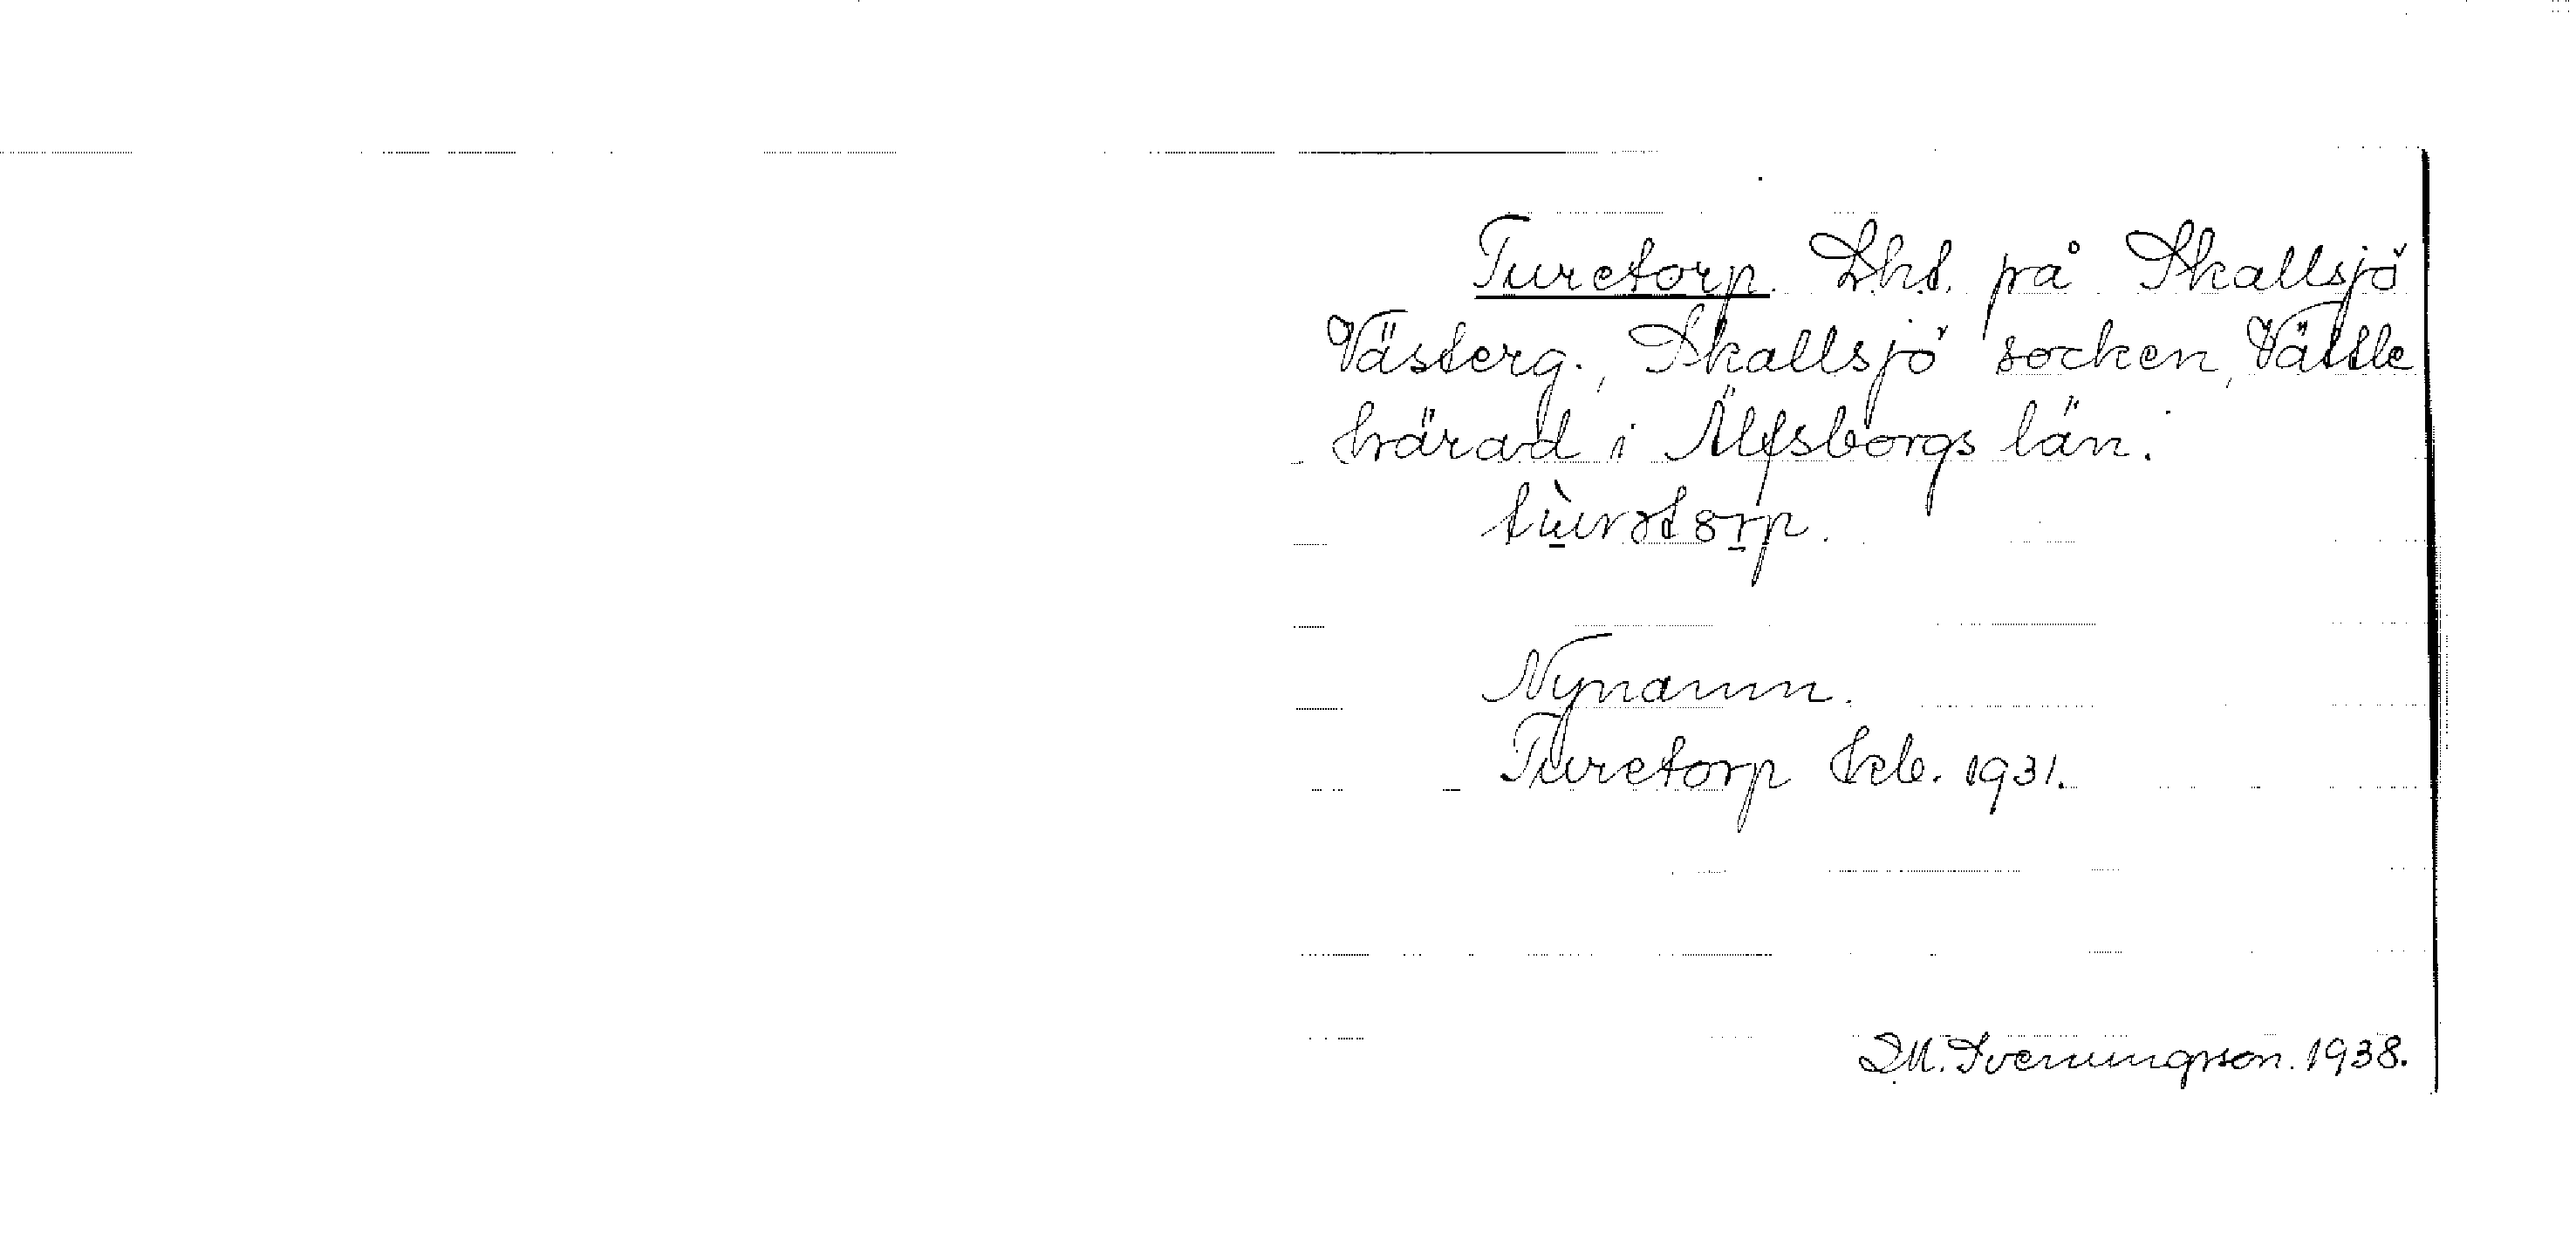 Turetorp. Lht. på Skallsjö
Västerg., Skallsjö socken, Vättle
härad i Älfsborgs län.
Nynamn.
Turetorp kb. 1931.
D.M. Svenungsson. 1938.